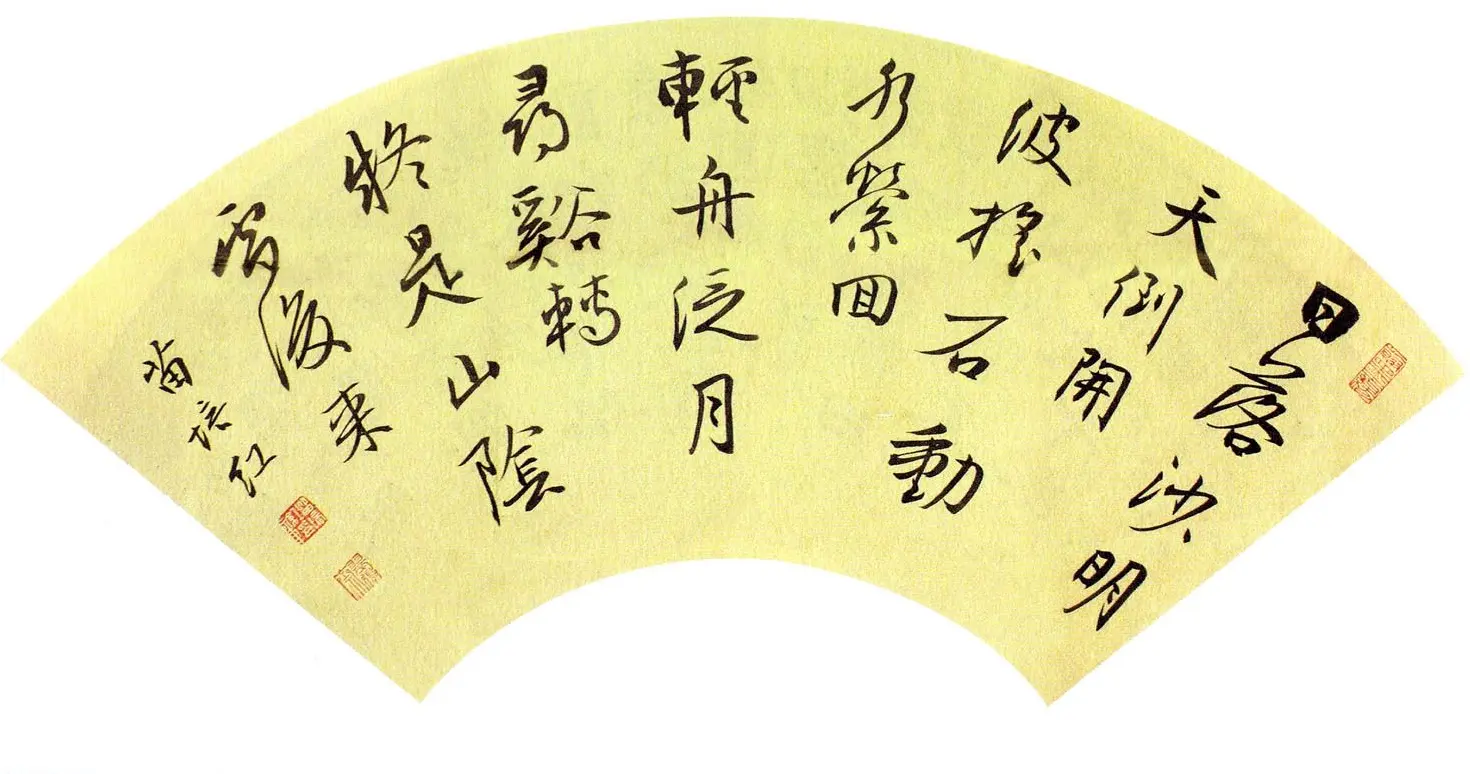 日落沙明
天倒開
波搖石動
水縈囬
輕舟泛月
尋谿轉
疑是山陰
雪後来
苗培红